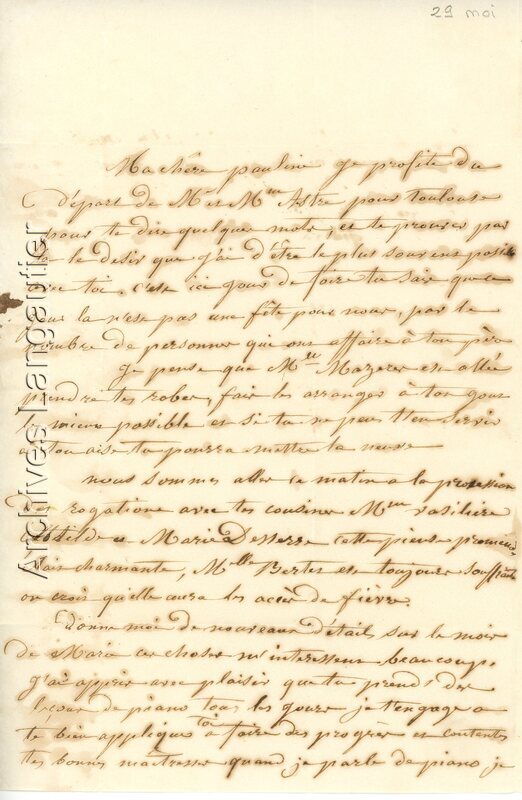 29 mai
Ma chère pauline je profite du
départ de Mr et Mme Astre pour toulouse
pour te dire quelques mots, et te prouver par
la le desir que j'ai d'être le plus souvent possible
avec toi. c'est ici jour de foire tu sais que ce
jour la n'est pas une fête pour nous, par le
nombre de personnes qui ont affaire à ton père
Je pense que Mlle Mazeres est allée
prendre tes robes, fais les arranges à ton gout
le mieux possible et si tu ne peus t'en servir
à ton aise tu pourra mettre la neuve
nous sommes aller ce matin a la procession
des rogations avec tes cousines Mme vasiliere
Clotilde et Marie Desserre cette pieuse promenade
était charmante, Melle Bertes est toujours souffrante
on crois qu'elle aura les accès de fièvre.
Donne moi de nouveaux détails sur le mois
de Marie ces choses m'interessent beaucoup.
j'ai appris avec plaisir que tu prends des
leçons de piano tous les jours je t'engage a
té bien applique toi à faire des progrès et contentes
tes bonnes maîtresses quand je parle de piano je
Archives Langautier